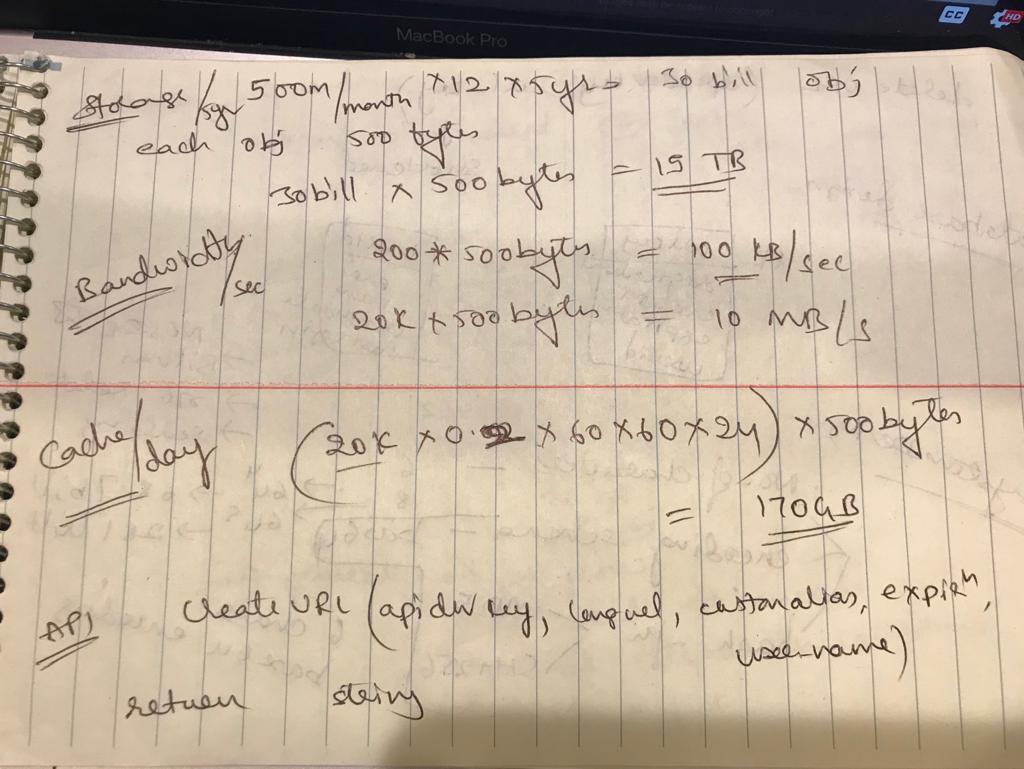 CC HD
MacBook Pro
Storage /5yr 500m/month × 12 × 5yrs = 30 bill obj
each obj 500 bytes
30bill × 500 bytes = 15 TB
Bandwidth/sec 200 * 500bytes = 100 KB/sec
20K × 500 bytes = 10 MB/s
Cache/day (20K × 0.2 × 60×60×24) × 500bytes
= 170GB
API createURL (apidevkey, longurl, customalias, expirn,
username)
return string